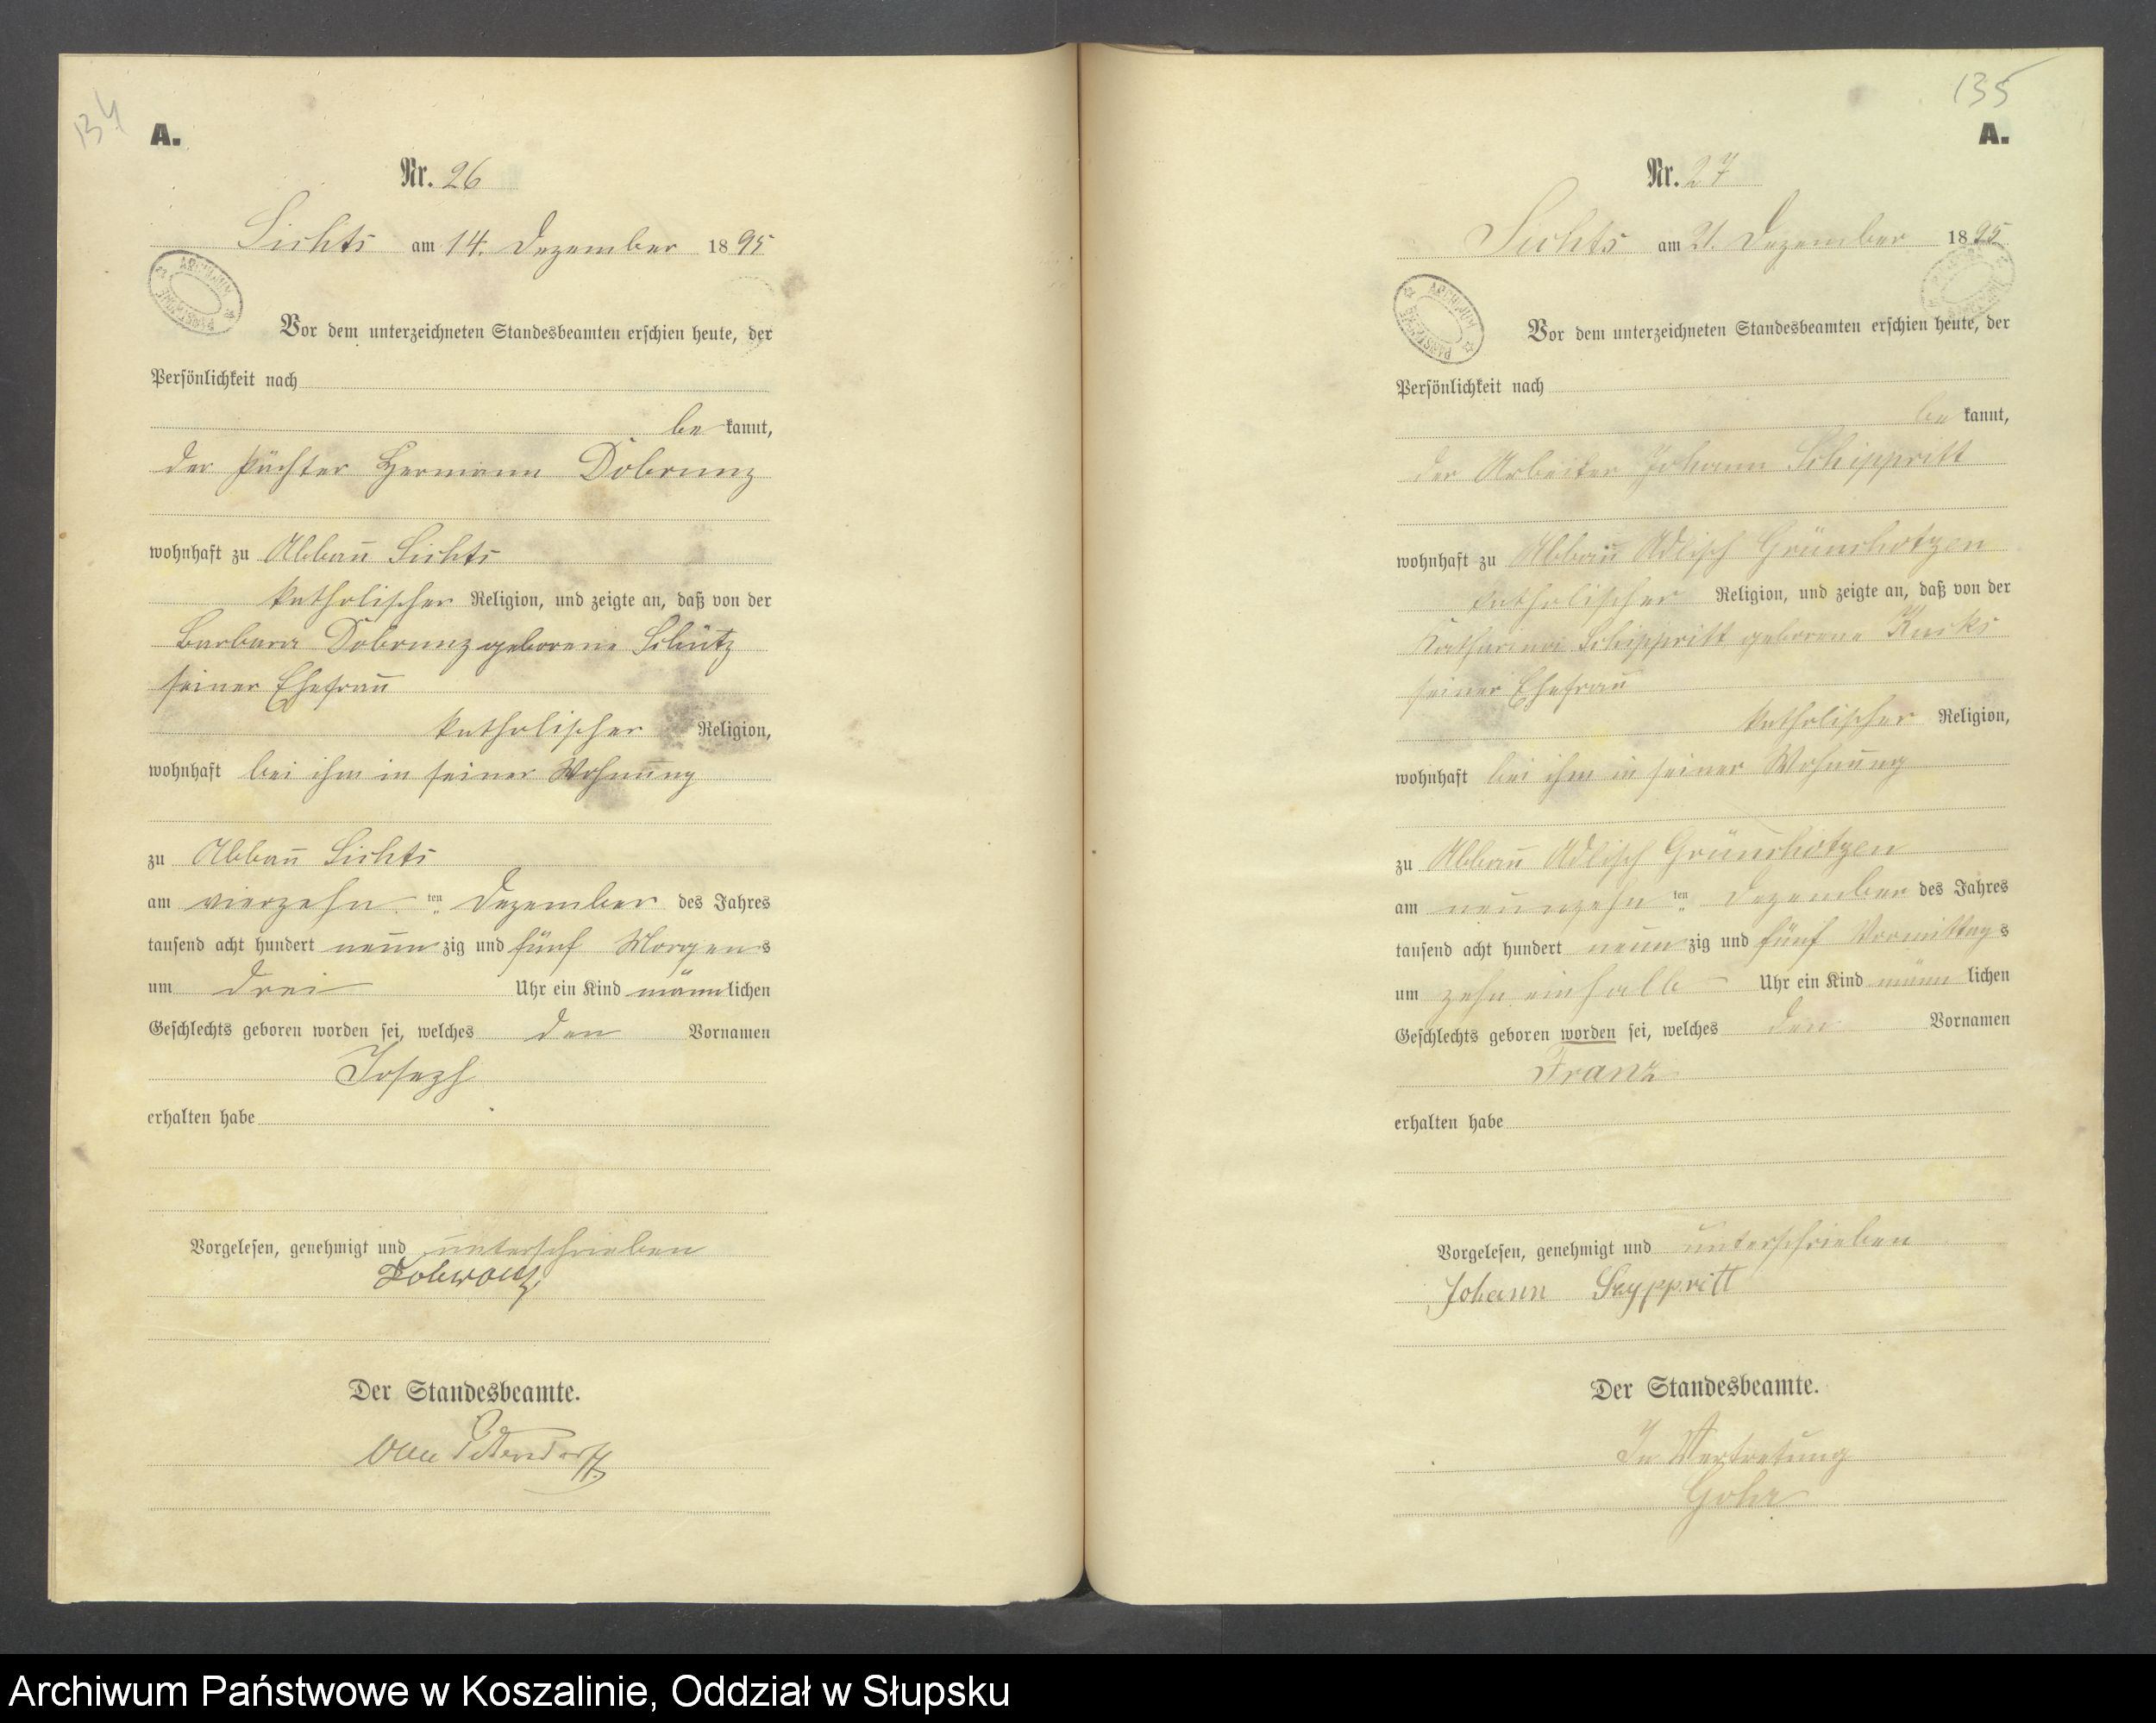 134
A.
Nr. 26
Lichts am 14. Dezember 1895
ARCHIWUM PAŃSTWOWE
Vor dem unterzeichneten Standesbeamten erschien heute, der
Persönlichkeit nach
be kannt,
der Pächter Hermann Dobrunz
wohnhaft zu Abbau Lichts
katholischer Religion, und zeigte an, daß von der
Barbara Dobrunz geborene Schütz
seiner Ehefrau
katholischer Religion,
wohnhaft bei ihm in seiner Wohnung
zu Abbau Lichts
am vierzehn ten Dezember des Jahres
tausend acht hundert neun zig und fünf Morgens
um drei Uhr ein Kind männlichen
Geschlechts geboren worden sei, welches den Vornamen
Joseph
erhalten habe
Vorgelesen, genehmigt und unterschrieben
Der Standesbeamte.
135
A.
Nr. 27
Lichts am 21. Dezember 1895
ARCHIWUM PAŃSTWOWE
Vor dem unterzeichneten Standesbeamten erschien heute, der
Persönlichkeit nach
be kannt,
der Arbeiter Johann Schippritt
wohnhaft zu Abbau Adlisch Grünchotzen
katholischer Religion, und zeigte an, daß von der
Katharina Schippritt geborene
seiner Ehefrau
katholischer Religion,
wohnhaft bei ihm in seiner Wohnung
zu Abbau Adlisch Grünchotzen
am neunzehn ten Dezember des Jahres
tausend acht hundert neun zig und fünf Vormittags
um zehn einhalb Uhr ein Kind männ lichen
Geschlechts geboren worden sei, welches den Vornamen
Franz
erhalten habe
Vorgelesen, genehmigt und unterschrieben
Johann Szyppritt
Der Standesbeamte.
In Vertretung
Gohr
Archiwum Państwowe w Koszalinie, Oddział w Słupsku